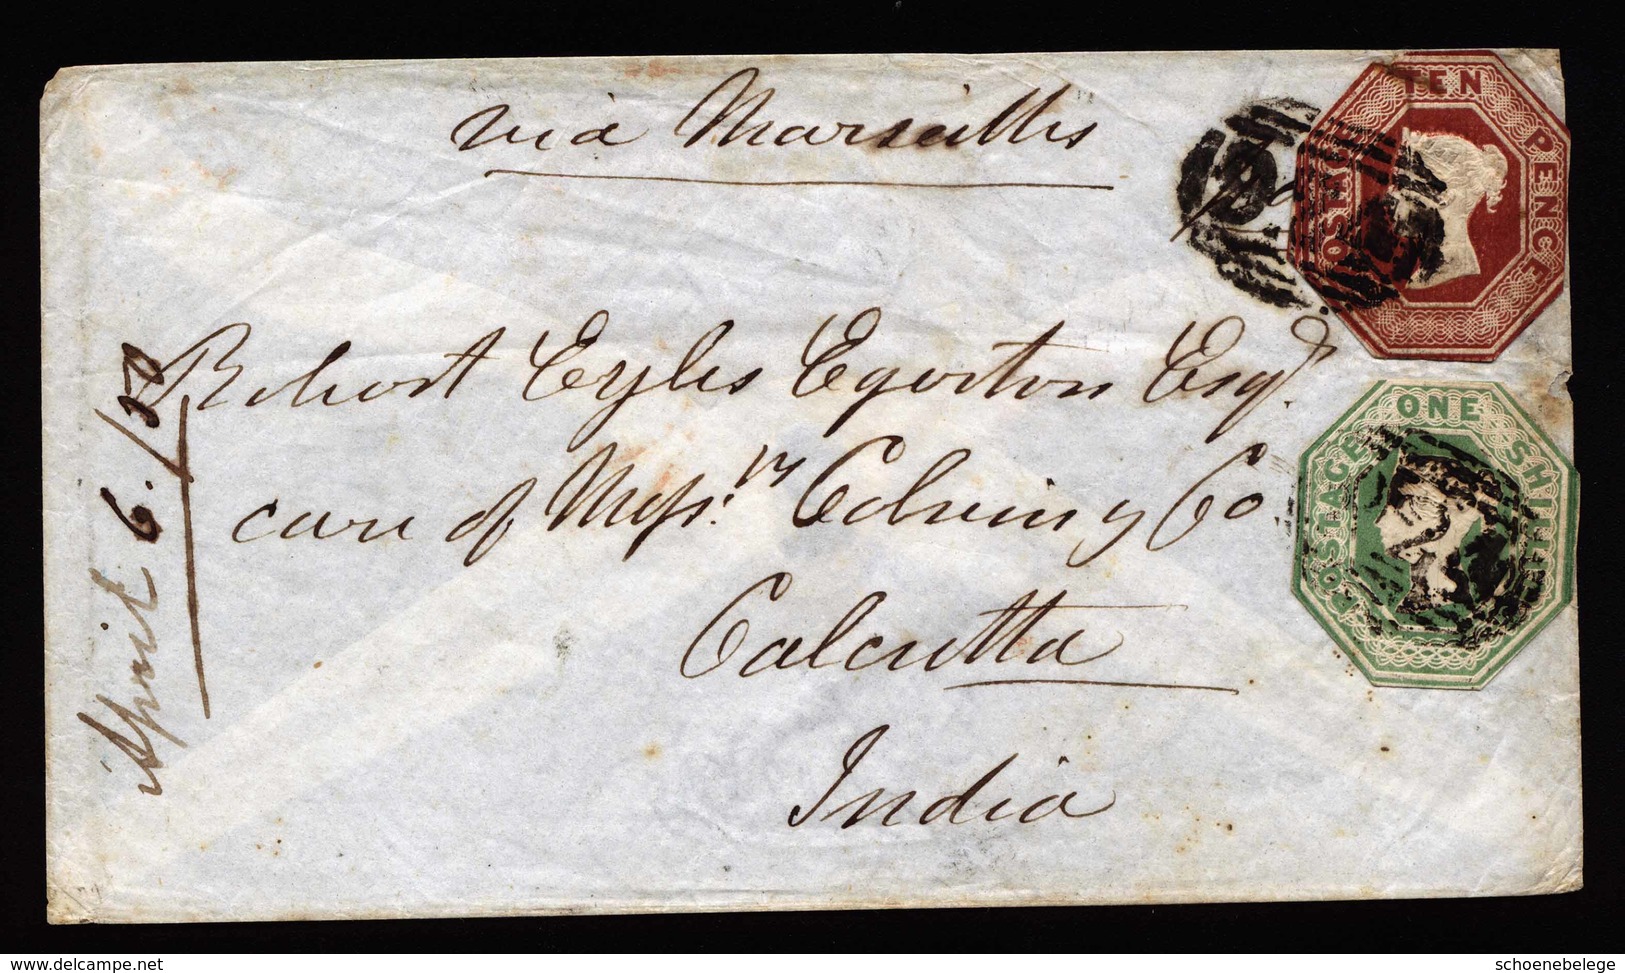 via Marseilles
TEN PENCE
POSTAGE
Robert Eyles Egerton Esq.
care of Messrs. Colvin & Co
Calcutta
India
ONE SHILLING
POSTAGE
April 6./50
delcampe.net
schoenebelege